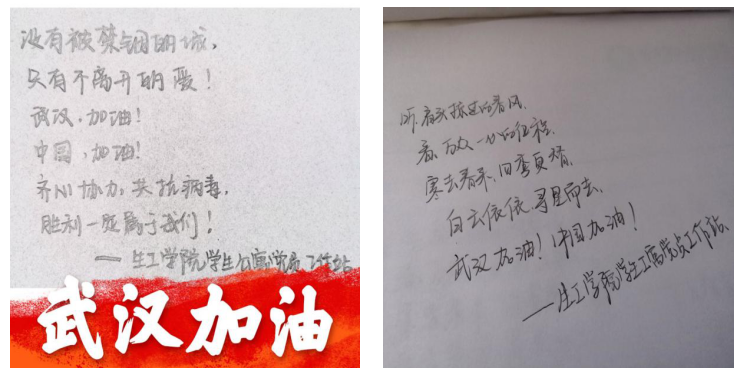 没有被禁锢的城，
只有不离开的爱！
武汉，加油！
中国，加油！
齐心协力，共抗病毒，
胜利一定属于我们！
——生工学院学生公寓党员工作站
武汉加油
听，春
看，万众一心的征程，
寒去春来，山峦更青，
白云依依，寻星而去，
武汉加油！中国加油！
——生工学院学生公寓党员工作站